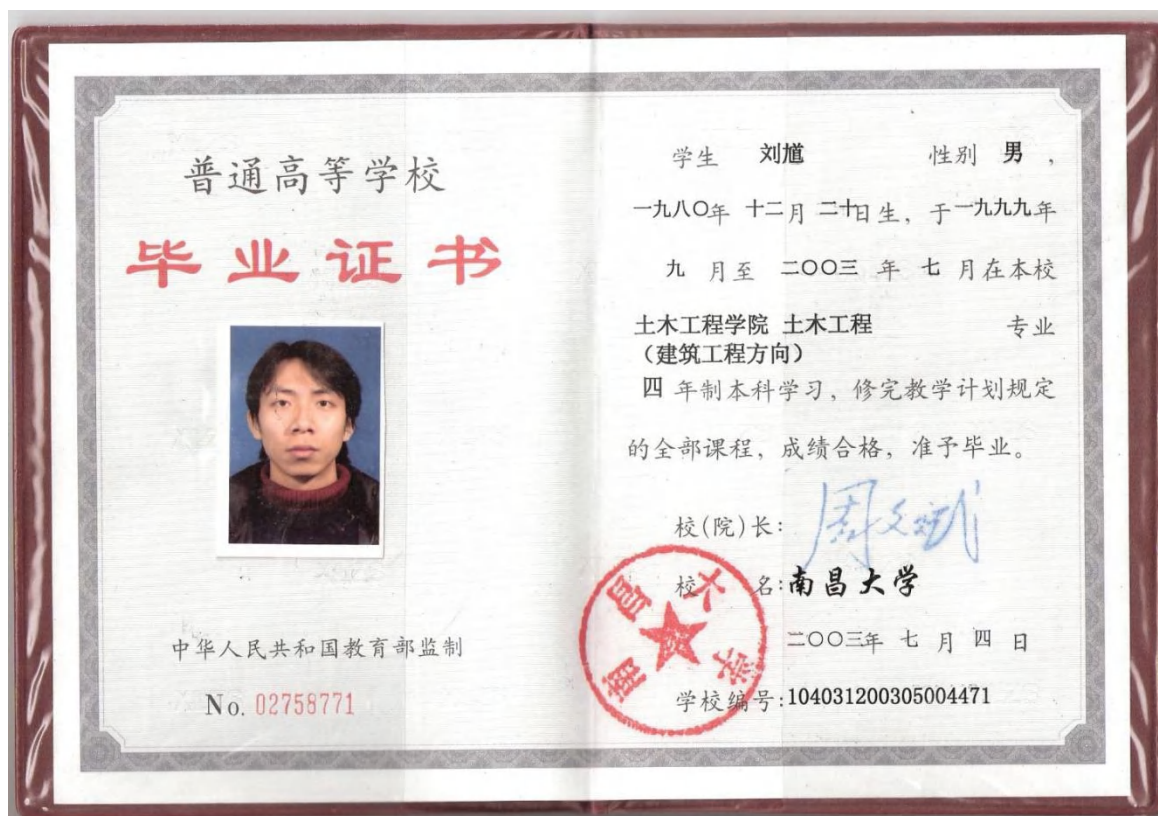 普通高等学校
毕业证书
中华人民共和国教育部监制
No. 02758771
学生 刘馗 性别 男，
一九八〇年 十二月 二十日生，于一九九九年
九 月至 二〇〇三 年 七 月在本校
土木工程学院 土木工程 专业
（建筑工程方向）
四 年制本科学习，修完教学计划规定
的全部课程，成绩合格，准予毕业。
校(院)长：周文斌
校 名：南昌大学
二〇〇三年 七 月 四 日
学校编号：104031200305004471
南昌大学